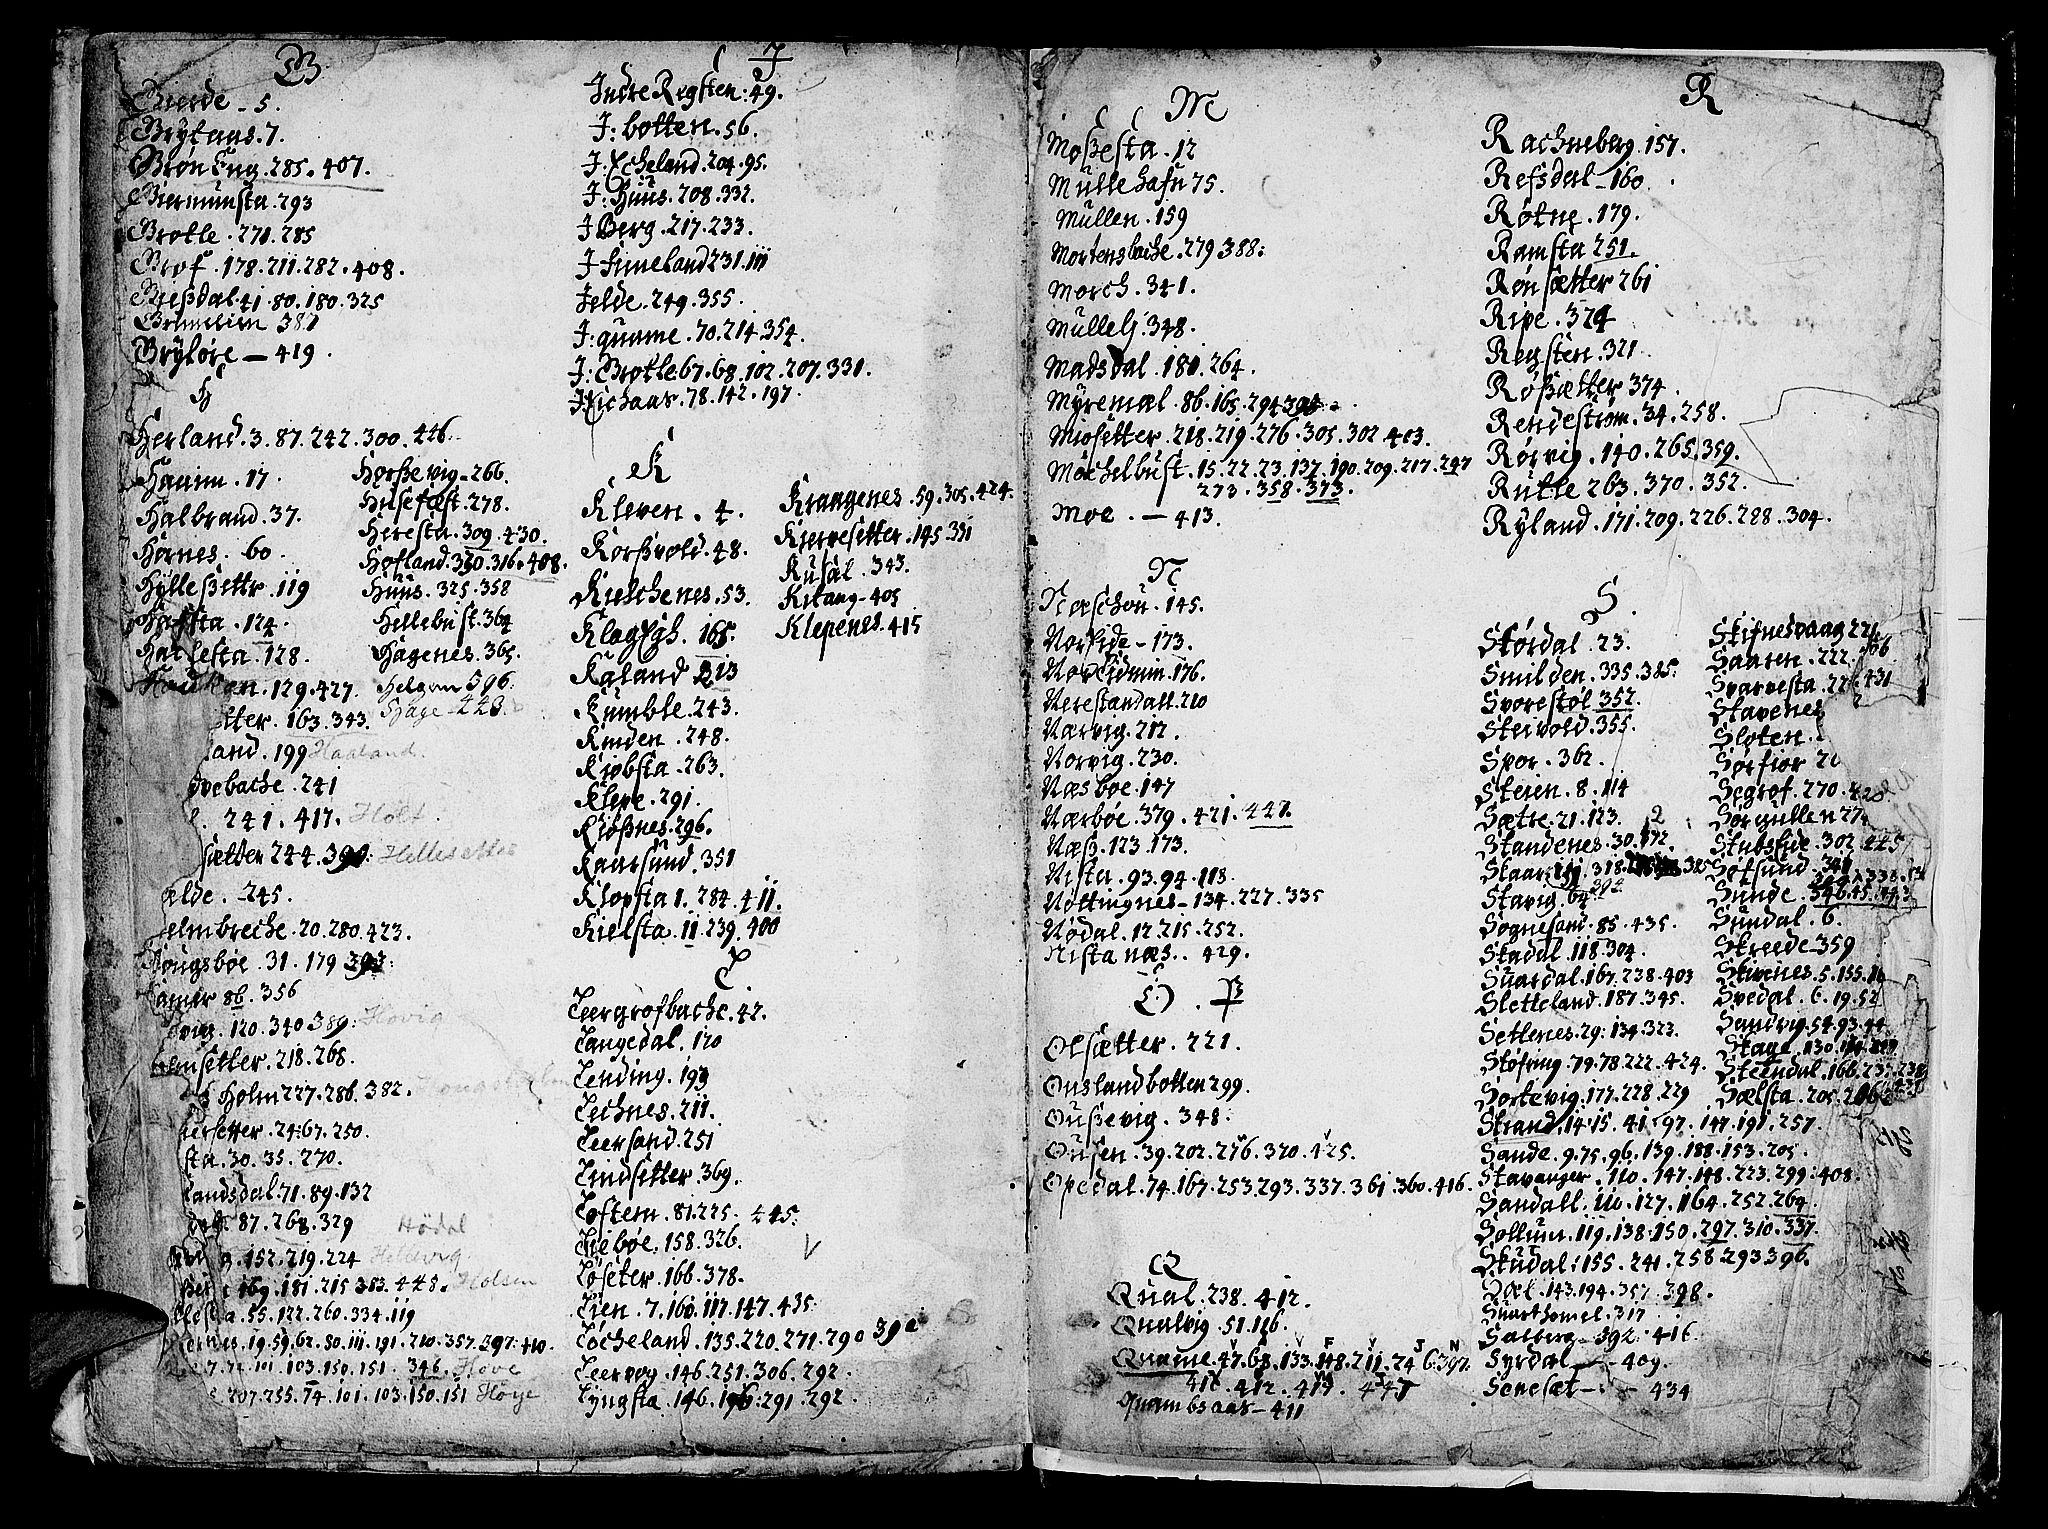 G
Gierde - 5.
Grytaas. 7.
Grøn Eng. 285. 407.
Giermunsta. 293
Grotle. 271. 285
Grof. 178. 211. 282. 408.
Gießdal. 41. 80. 180. 325
Grimelien 387
Grytøre — 419.
H
Herland. 3. 87. 242. 300. 426.
Haann. 17.
Halbrand. 37.
Hornes. 60.
Hylleßettr. 119
Haffsta. 174.
Hatlesta. 128.
Houkaa. 129. 427.
etter. 163. 343.
land. 199 Haaland.
vebache. 241
241. 417. Holt.
sætter 244. 390: Hellesetter
ælde. 245.
elmbreche. 20. 280. 423.
Hougsbøe. 31. 179 393:
Hamer 86. 356
vig. 120. 340 389: Hovig
lmsetter. 218. 268.
Holm 227. 286. 382.
iersetter. 24: 67. 250.
sta. 30. 35. 270.
landsdal. 71. 89. 132
87. 268. 329 Hødal
152. 219. 224 Heldvig
169. 181. 215 383. 445. Holsen
lesta. 55. 122. 260. 334. 119
ernes. 19. 59. 62. 80. 111. 191. 210. 357. 397. 410.
101. 103. 150. 151. 346. Hove
207. 255. 74. 101. 103. 150. 151 Høye
Horßevig. 266.
Husefæst. 278.
Heresta. 309. 430.
Hofland. 310. 316. 408.
Huus. 325. 358
Hillebust. 364
Hagenes. 365.
Helgøen 596.
Hage - 423.
J
Indre Regsten: 49.
J: botten. 56.
J: Echeland. 204. 95.
J: Huus. 208. 332.
J Berg. 217. 233.
J Himeland 231. 111
Jelde. 249. 355.
J: quame. 70. 214. 354.
J: Grotle 67. 68. 102. 207. 331.
J Eichaas. 78. 142. 197.
K
Kleven. 4.
Korßvold. 48.
Kielchenes. 53.
Klagegh. 165.
Kaland 213
Kumble. 243.
Kinden. 248.
Kiøbsta. 263.
Kleve. 291.
Kiøßnes. 296.
Kaarsund. 351
Klopsta 1. 284. 411.
Kielsta. 11. 239. 400
Kraagenes. 59. 305. 424.
Kiervesetter. 145. 331
Kusal. 343.
Kitang - 405
Klepenes. 415
L
Leergrofbache. 42.
Langedal. 120
Lending. 193
Lechnes. 211.
Leersand. 251
Lindsetter. 369.
Loftem. 81. 225. 425:
Liebøe. 158. 326.
Løseter. 166. 378.
Lien. 7. 160. 117. 147. 435.
Locheland. 135. 220. 271. 290 390
Leervog. 146. 251. 306. 292.
Lyngsta. 146. 196: 291. 292.
M
Moßesta. 12
Mullehafn 75.
Mullen. 159
Mortensbache. 279. 388:
Morch. 341.
Mullelj. 348.
Madsdal. 181. 264.
Myremæl. 86. 165. 294. 394.
Miosetter. 218. 219. 276. 305. 302. 403.
Mochelbust. 15. 22. 23. 137. 190. 209. 217. 247
273. 358. 373.
Moe. — 413.
N
Naschou. 145.
Norside - 173.
Nor Eidmin. 176.
Nerestandall. 210
Narvig. 212.
Norvig. 230.
Næsboe. 147
Nærbøe. 379. 421. 427.
Næß. 173. 173.
Nista. 93. 94. 113.
Nottingnes - 134. 227. 335
Nødal. 12. 215. 252.
Nistanæs. 429.
O. P
Olsætter. 221.
Ouslandbotten 299.
Oußevig. 348:
Ousen. 39. 202. 276. 320. 425.
Opedal. 74. 167. 253. 293. 337. 361. 360. 416.
Q
Qual. 238. 412.
Qualvig. 51. 116.
Quame. 47. 68. 133. 148. 211. 24 6. 397.
412. 412. 413. 447
Quambsaas - 411
R
Rachneberg. 157.
Refsdal - 160.
Røtne. 179.
Ramsta 251.
Røn sætter 261
Ripe. 374
Regsten. 321.
Roßætter 374.
Rendestrøm. 34. 258.
Rørvig. 140. 265. 359.
Rutle 263. 370. 352.
Ryland. 171. 209. 226. 288. 304.
S
Størdal. 23.
Smilden. 335. 385.
Svorestøl 352.
Steivold. 355.
Svor. 362.
Steien. 8. 114
Sætre. 21. 123.
Standenes. 30. 172.
Staar. 111. 318. 385
Stavig. 64. 292
Sognesand. 85. 435.
Stadal. 118. 304.
Suardal. 167. 238. 403
Sletteland. 187. 345.
Setlenes. 29: 134. 323.
Støfring. 79. 78. 222. 424.
Sortevig. 177. 228. 229
Strand. 14. 15. 41. 97. 147. 191. 257.
Sande. 9. 75. 96. 139. 188. 153. 205.
Stavanger. 110. 147. 148. 223. 299: 408.
Sandall. 110. 127. 164. 252. 264.
Sollum. 119. 138. 150. 297. 310. 337.
Skudal: 155. 241. 258 293 396.
Sæl. 143. 194. 357. 398.
Suarthomel. 317
Salberg - 392. 416.
Syrdal - 409.
Senesæt - 434
Skifnesvaag 221
Saaren. 222.
Svarvesta. 431
Stavenes
Sloten.
Sørfior
Segrof. 270. 428.
Sørgullen 27
Stubslide. 302. 425
Søfsund.
Sunde. 346. 45. 443
Sundal. 6.
Skreede 359
Skivenes. 5. 135. 16
Svedal. 6. 19. 52
Sandvig. 54. 93. 44
Stage. 130.
Steendal. 166. 232. 238
Sælsta. 205. 206